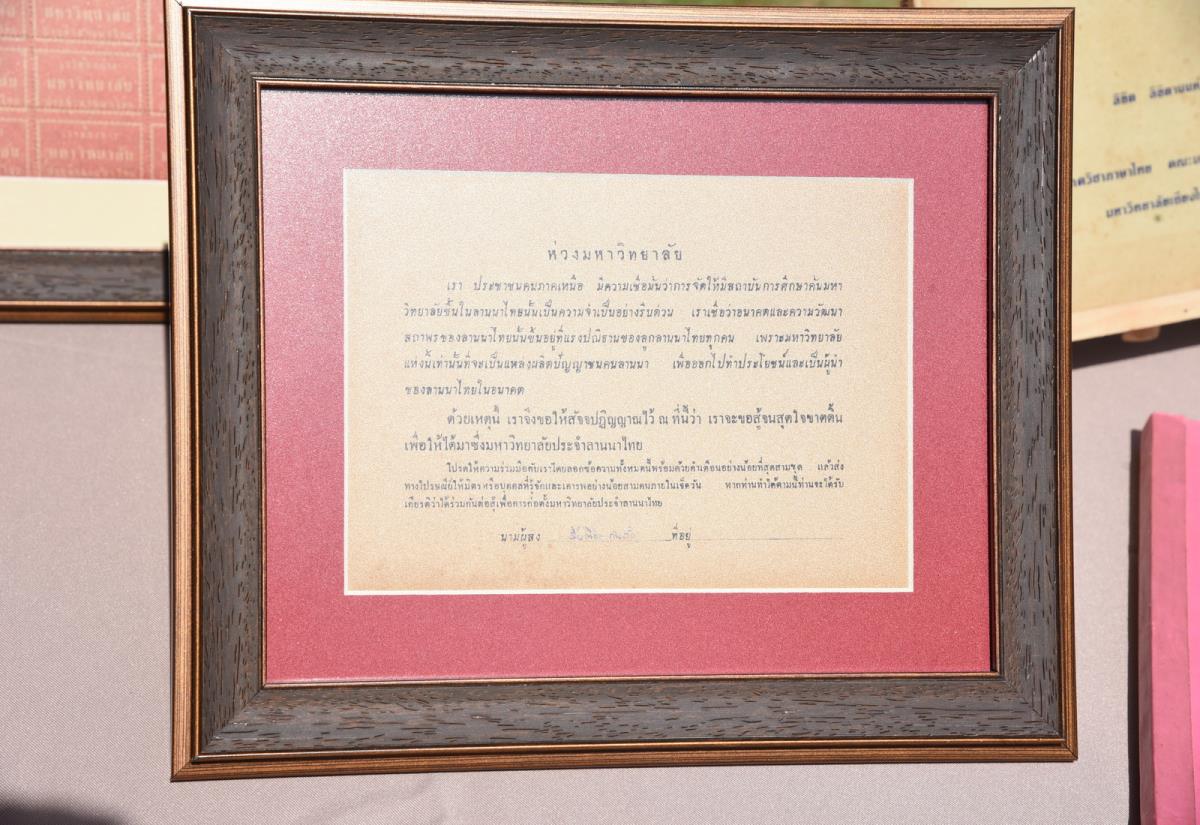 มหาวิทยาลัย
มหาวิทยาลัย
มหาวิทยาลัย
ลิขิต ลิขิตานนท์
ภาควิชาภาษาไทย คณะ
มหาวิทยาลัยเชียงให
ห่วงมหาวิทยาลัย
เรา ประชาชนคนภาคเหนือ มีความเชื่อมั่นว่าการจัดให้มีสถาบันการศึกษาค้นมหา
วิทยาลัยขึ้นในลานนาไทยนั้นเป็นความจำเป็นอย่างรีบด่วน เราเชื่อว่าอนาคตและความวัฒนา
สถาพรของลานนาไทยนั้นขึ้นอยู่ที่แรงปณิธานของลูกลานนาไทยทุกคน เพราะมหาวิทยาลัย
แห่งนี้เท่านั้นที่จะเป็นแหล่งผลิตปัญญาชนคนลานนา เพื่อออกไปทำประโยชน์และเป็นผู้นำ
ของลานนาไทยในอนาคต
ด้วยเหตุนี้ เราจึงขอให้สัจจปฏิญญาณไว้ ณ ที่นี้ว่า เราจะขอสู้จนสุดใจขาดดิ้น
เพื่อให้ได้มาซึ่งมหาวิทยาลัยประจำลานนาไทย
โปรดให้ความร่วมมือกับเราโดยลอกข้อความทั้งหมดนี้พร้อมด้วยคำเตือนอย่างน้อยที่สุดสามชุด แล้วส่ง
ทางไปรษณีย์ให้มิตร หรือบุคคลที่รู้จักและเคารพอย่างน้อยสามคนภายในเจ็ดวัน หากท่านทำได้ตามนี้ท่านจะได้รับ
เกียรติว่าได้ร่วมกันต่อสู้เพื่อการก่อตั้งมหาวิทยาลัยประจำลานนาไทย
นามผู้ส่ง ที่อยู่